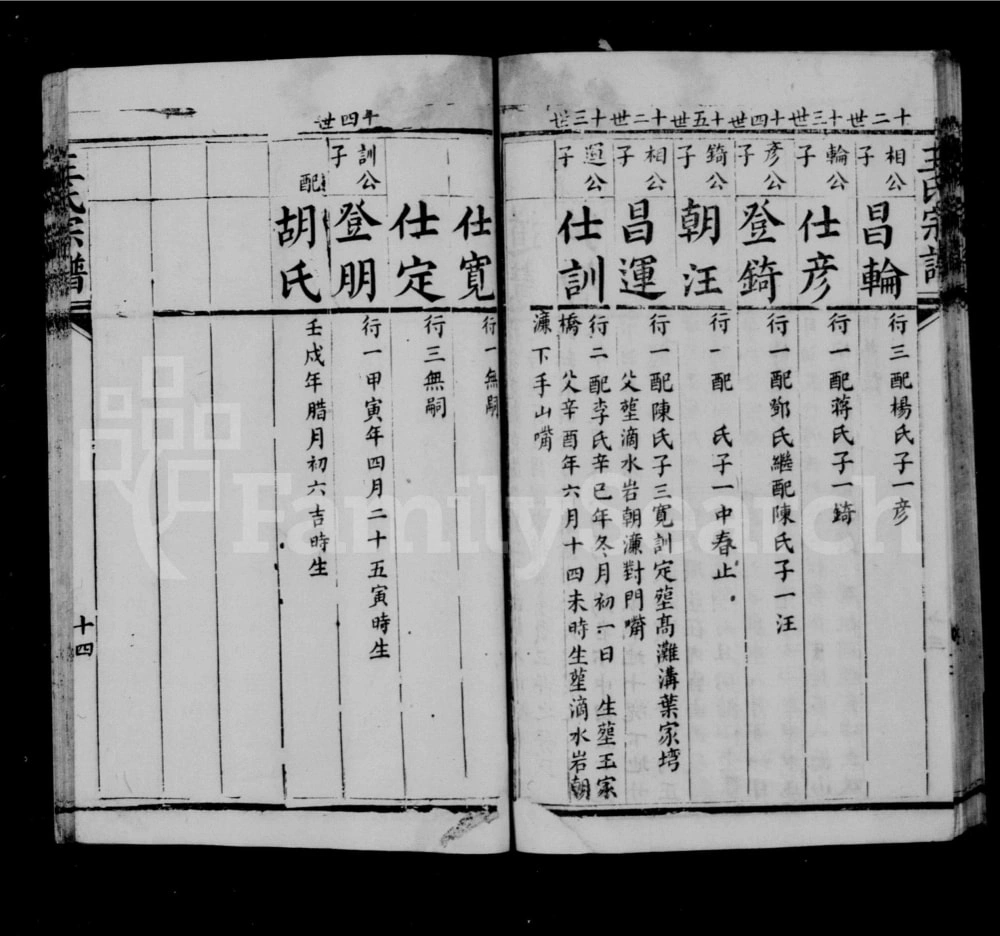 王氏宗譜
十二世
相公子
昌輪
行三配楊氏子一彥
十三世
輪公子
仕彦
行一配蔣氏子一錡
十四世
彥公子
登錡
行一配鄧氏繼配陳氏子一汪
十五世
錡公子
朝汪
行一配 氏子一中春止
十二世
相公子
昌運
行一配陳氏子三寬訓定塟高灘溝葉家塆
父塟滴水岩朝濂對門嘴
十三世
運公子
仕訓
行二配李氏辛巳年冬月初一日 生塟王家
橋父辛酉年六月十四未時生塟滴水岩朝
濂下手山嘴
仕寬
行一無嗣
仕定
行三無嗣
十四世
訓公子
登朋
行一甲寅年四月二十五寅時生
配
胡氏
壬戍年腊月初六吉時生
王氏宗譜
十四
FamilySearch